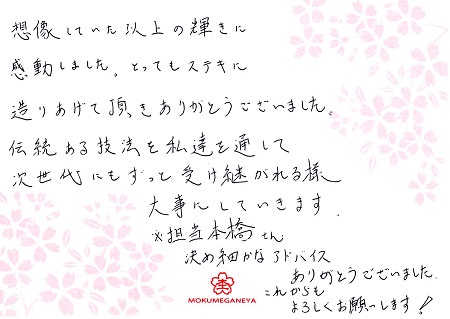 想像していた以上の輝きに
感動しました。とってもステキに
造りあげて頂きありがとうございました。
伝統ある技法を私達を通して
次世代にもずっと受け継がれる様
大事にしていきます.
※担当本橋さん
決め細かなアドバイス
ありがとうございました.
これからも
よろしくお願いします!
MOKUMEGANEYA